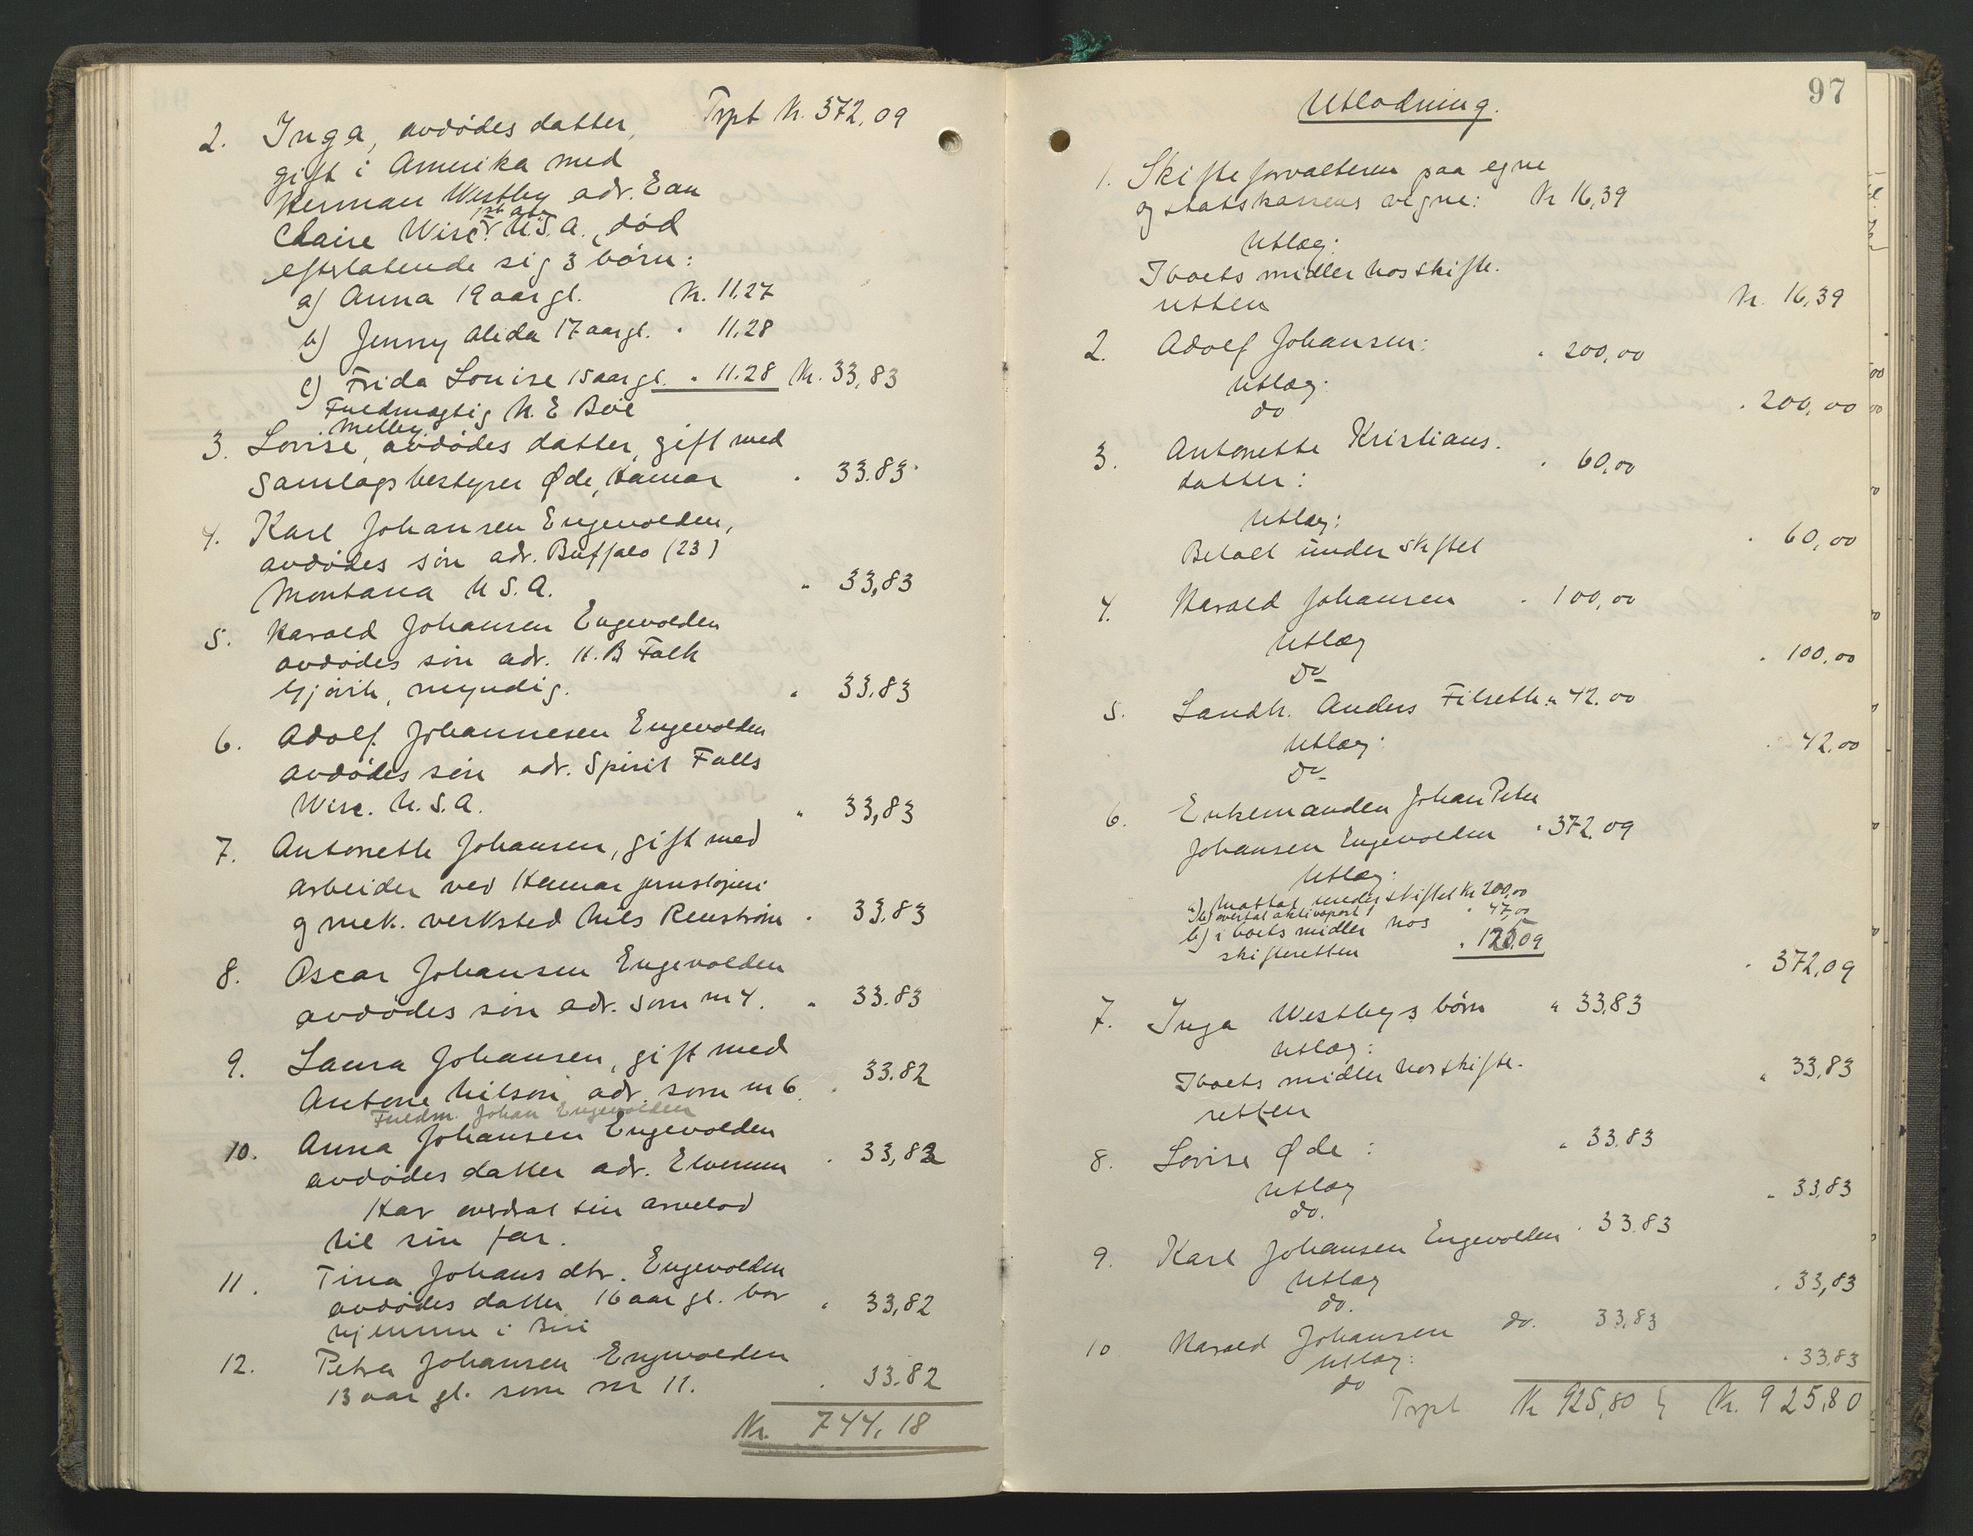 Trpt Kr. 372,09
2. Inga, avdödes datter,
gift i Amerika med
Herman Westby adr. Eau
Claire Wisc. U.S.A., död
efterlatende sig 3 börn:
a) Anna 19 aar gl. Kr. 11.27
b) Jenny Alida 17 aar gl. " 11.28
c) Frida Louise 15 aar gl. " 11.28 Kr. 33,83
Fuldmægtig H. E Boe
Melby.
3. Lovise, avdödes datter, gift med
Samlagsbestyrer Øde, Hamar " 33.83
4. Karl Johansen Engevolden,
avdödes sön adr. Buffalo (23)
Montana U S. A. " 33,83
5. Harald Johansen Engevolden
avdödes sön adr. H. B Falk
Gjövik, myndig. " 33.83
6. Adolf Johannesen Engevolden
avdödes sön adr. Spirit Falls
Wisc. U. S. A. " 33,83
7. Antonette Johansen, gift med
arbeider ved Hamar jernstöperi
og mek. verksted Nils Renström " 33.83
8. Oscar Johansen Engevolden
avdödes sön adr. som nr 4. " 33.83
9. Laura Johansen, gift med
Antone Nilson, adr. som nr 6. " 33.82
Fuldm. Johan Engevolden
10. Anna Johansen Engevolden
avdödes datter adr. Elverum " 33,82
Har overdrat sin arvelod
til sin far.
11. Tina Johansdtr. Engevolden
avdödes datter 16 aar gl. bor " 33,82
hjemme i Biri
12. Petra Johansen Engevolden
13 aar gl. som nr 11. " 33.82
Kr. 744.18
97
Utlodning.
1. Skifteforvalteren paa egne
og statskassens vegne: Kr 16,39
Utlæg:
I boets midler hos skifte-
retten Kr. 16,39
2. Adolf Johansen: " 200,00
Utlæg:
do " 200,00
3. Antonette Kristians-
datter: " 60,00
Utlæg:
Betalt under skiftet " 60,00
4. Harald Johansen " 100,00
Utlæg
Do " 100,00
5. Landh. Anders Filseth " 42.00
Utlæg:
Do " 42.00
6. Enkemanden Johan Peter
Johansen Engevolden " 372.09
Utlæg:
a) Mottat under skiftet Kr 200,00
b) overtat aktivapost 1 " 47,00
b) i boets midler hos
skifteretten " 125,09
" 372,09
7. Inga Westbys börn " 33.83
Utlæg:
I boets midler hos skifte-
retten " 33,83
8. Lovise Øde: " 33.83
Utlæg
do. " 33,83
9. Karl Johansen Engevolden " 33.83
Utlæg
do. " 33,83
10 Harald Johansen do. 33,83
Utlæg:
do " 33.83
Trpt Kr 925,80 Kr. 925,80